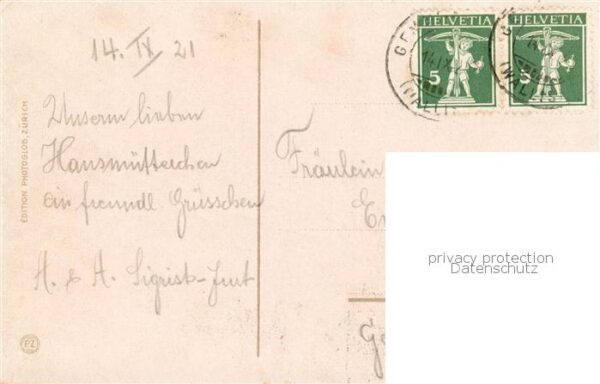 14. IX 21
Unserm lieben
Hausmütterchen
ein freundl Grüsschen
A. & A. Sigrist-
EDITION PHOTOGLOB, ZÜRICH
PZ
HELVETIA
5
HELVETIA
5
Fräulein
privacy protection
Datenschutz